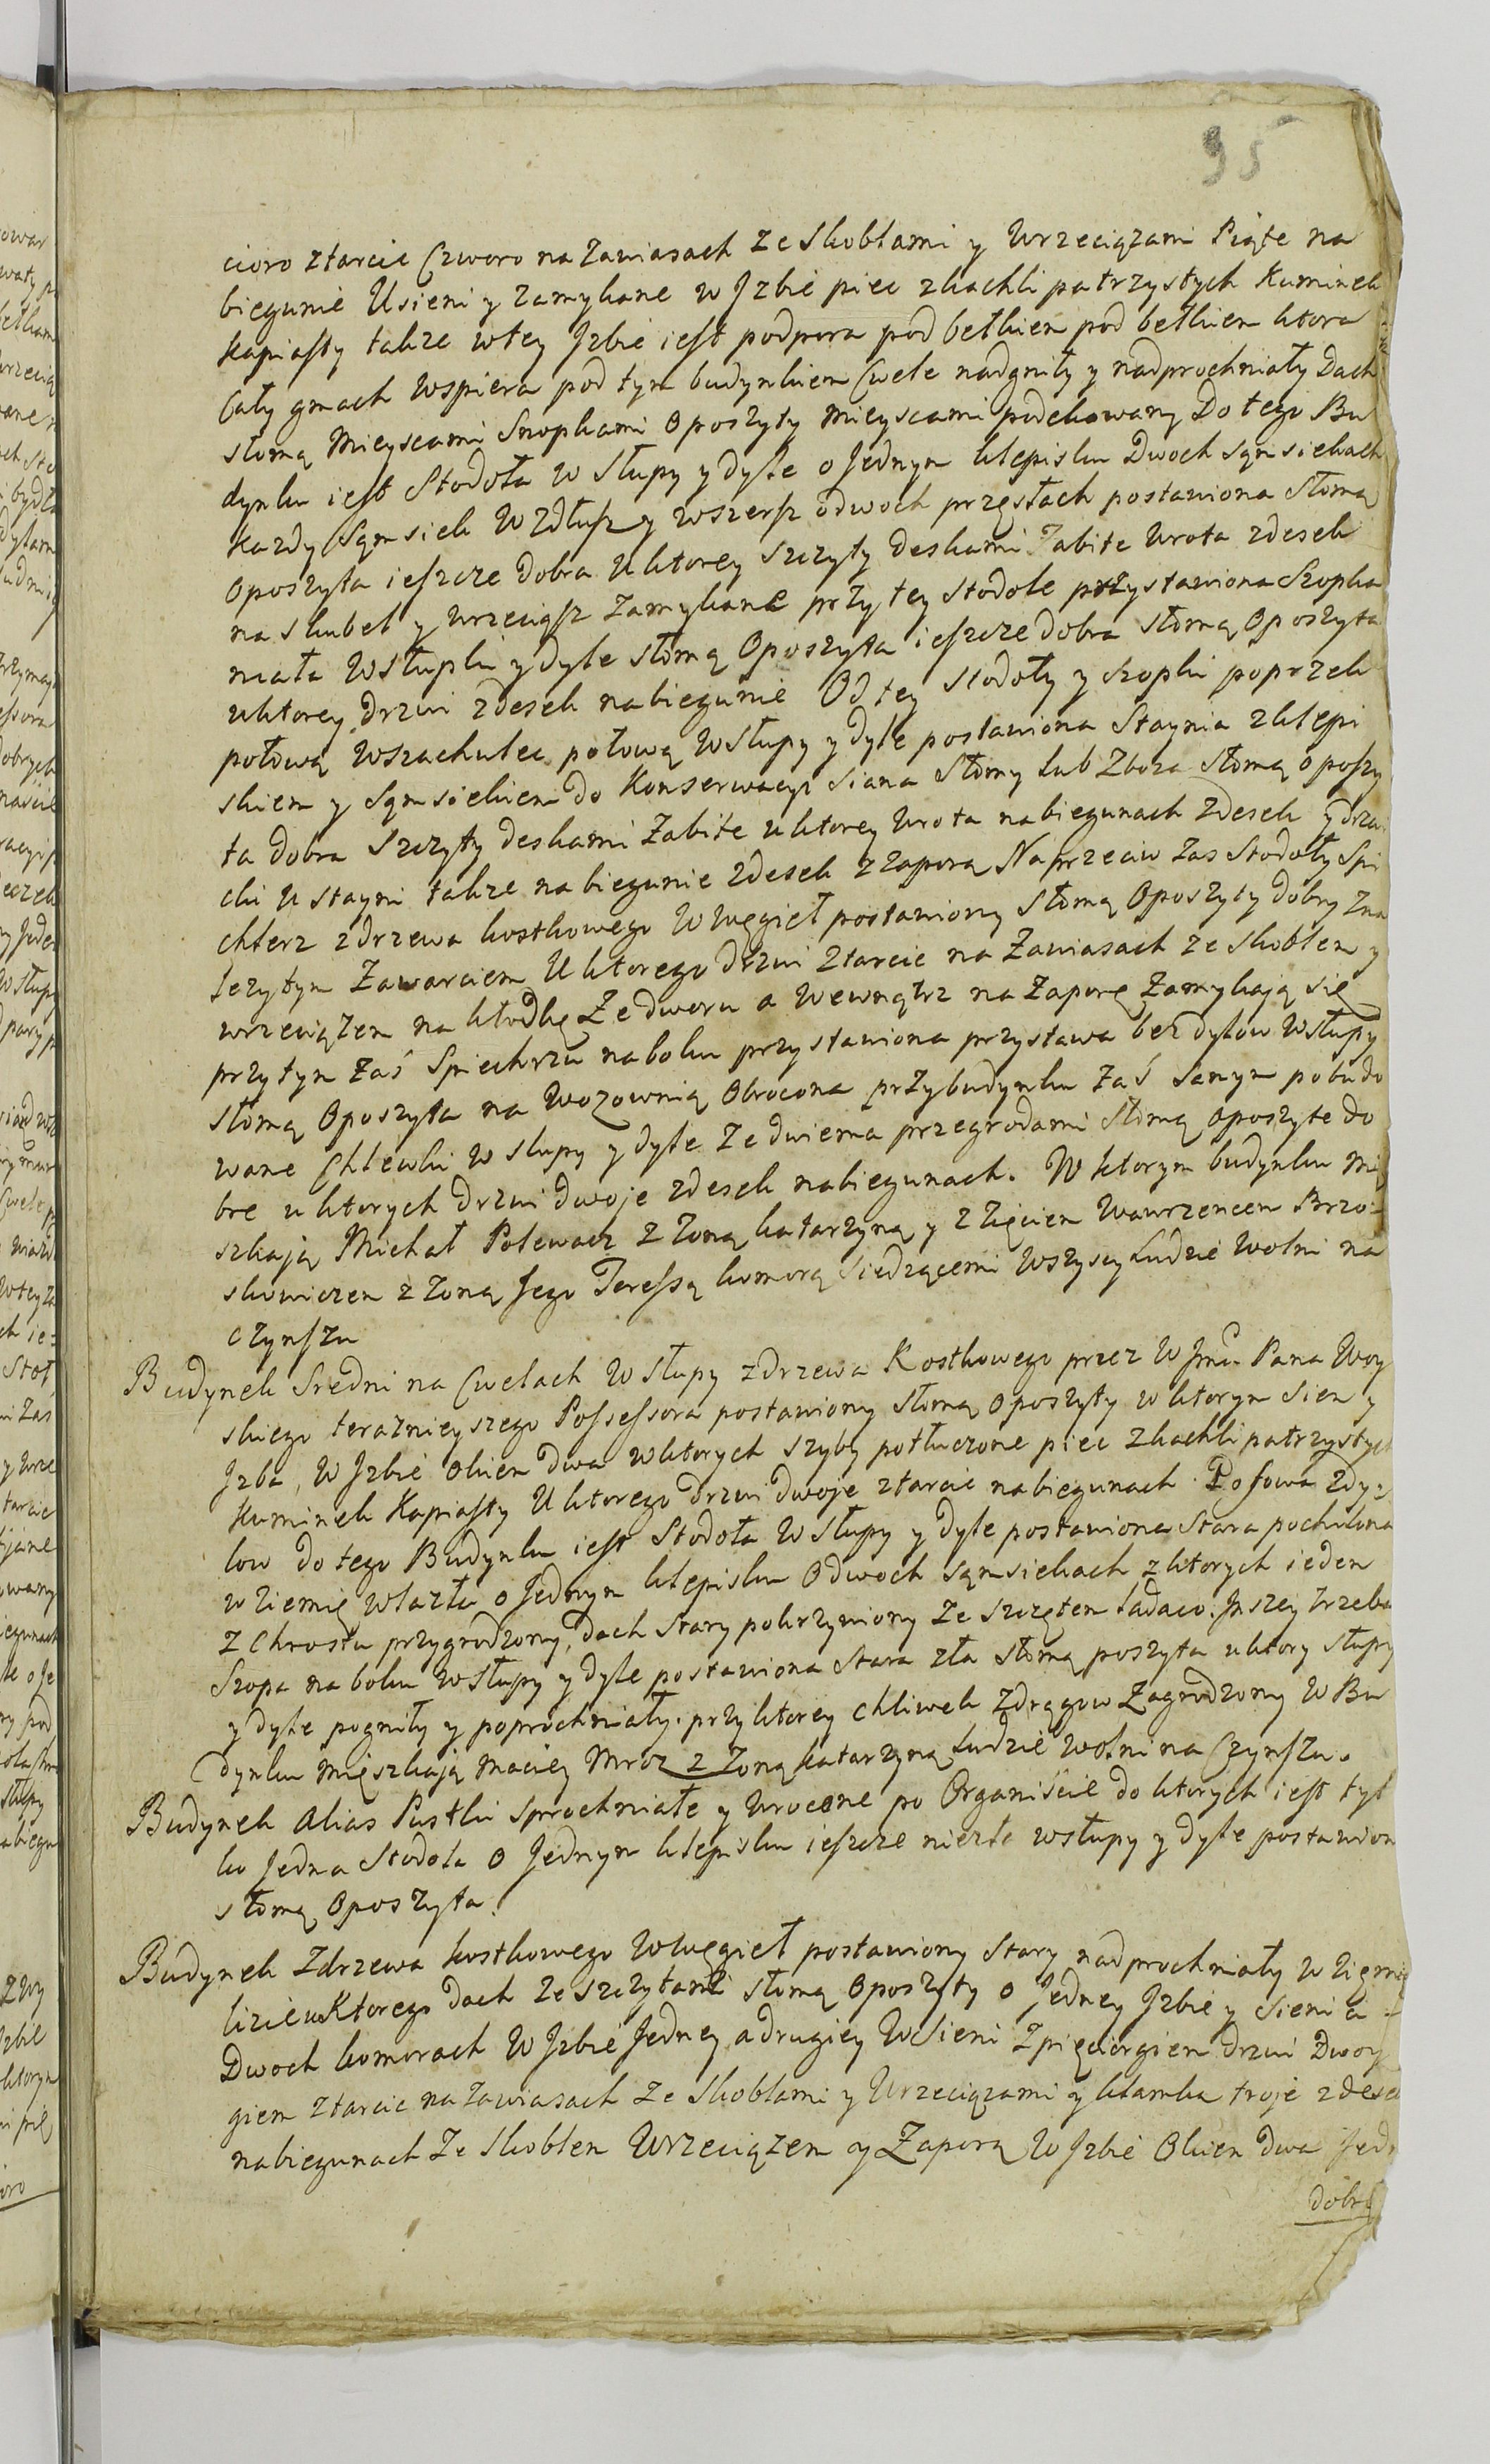 95
cioro ztarcic Czworo na Zawiasach ze Skoblami y Wrzeciązami Piąte na
biegunie Usieni y zamykane w Jzbie piec zkachli patrzystych Kuminek
Kapiasty takze wtey Jzbie iest podpora pod belkiem pod belkiem ktora
Cały gmach wspiera pod tym budynkiem Cwele nadgniły y nadprochniały Dach
słomą Mieyscami Snopkami Oposzyty Mieyscami podekowany Do tego Bu
dynku iest Stodoła w Słupy y dyle o Jednym klepisku Dwoch sąmsiekach
Kazdy Sąmsiek Wzdłusz y wszersz odwoch przęsłach postawiona Słomą
Oposzyta ieszcze Dobra Uktorey szczyty deskami Zabite Wrota zdesek
na skubel y wrzeciąsz Zamykane przy tey Stodole przystawiona Szopka
mała Wsłupki y dyle słomą Oposzyta ieszcze dobra słomą Oposzyta
uktorey drzwi zdesek nabiegunie Od tey Stodoły y szopki poprzek
połową Wszachulec połową Wsłupy y dyle postawiona Staynia zklepi
skiem y Sąmsiekiem do Konserwacyi Siana Słomy lub Zboza Słomą oposzy
ta dobra Szczyty deskami Zabite uktorey Wrota nabiegunach zdesek y drzwi
czki u stayni takze nabiegunie zdesek z zaporą Naprzeciw zas Stodoły Spi
chlerz zdrzewa kostkowego Wwęgieł postawiony Słomą Oposzyty dobry Zna
lezytym Zawarciem Uktorego drzwi ztarcic na Zawiasach ze skoblem y
wrzeciązem na kłodkę Zedworu a Wewnątrz na Zaporę Zamykają się
przytym Zaś Spichrzu naboku przystawiona przystawa bez dylow Wsłupy
słomą Oposzyta na Wozownią Obrocona przybudynku Zaś Samym pobudo
wane Chlewki w słupy y dyle Ze dwiema przegrodami Słomą oposzyte do
bre uktorych drzwi dwoje zdesek nabiegunach. W ktorym budynku Mię
szkają Michał Polewacz z Zoną katarzyną y z Zięciem Wawrzencem Brzo=
skowiczem z Zoną Jego Teressą komorą Siedzącemi Wszyscy Ludzie Wolni na
czynszu
Budynek Sredni na Cwelach W Słupy zdrzewa Kostkowego przez WJmci Pana Woy
skiego teraznieyszego Possessora postawiony słomą Oposzyty wktorym Sien y
Jzba, W Jzbie Okien dwa wktorych szyby potłuczone piec zkachli patrzystych
Kuminek Kapiasty Uktorego drzwi dwoje ztarcic nabiegunach. Posowa Zdy=
low do tego Budynku iest Stodoła W Słupy y dyle postawiona Stara pochilona
w ziemię wlazła o Jednym klepisku Odwoch sąmsiekach zktorych ieden
z Chrostu przygrodzony, dach Stary pokrzywiony Ze szczętem ładaco. Jnszey trzeba
Szopa na boku Wsłupy y dyle postawiona Stara zła Słomą poszyta uktory słupy
y dyle pogniły y poprochniały. przyktorey Chliwek Zdrągow Zagrodzony W Bu
dynku mięszkają Maciey Mroz z Zoną katarzyną Ludzie Wolni na Czynszu.
Budynek alias Pustki sprochniałe y wrocone po Organiście do ktorych iest tyl
ko Jedna Stodoła o Jednym klepisku ieszcze niezła wsłupy y dyle postawion
słomą Oposzyta.
Budynek Zdrzewa kostkowego Wwęgieł postawiony Stary nadprochniały w ziemię
lizie uKtorego dach ze szczytami słomą oposzyty o Jedney Jzbie y Sieni a
Dwoch komorach W Jzbie Jedney a drugiey W Sieni Zpięciorgiem drzwi Dwoy
giem ztarcic na zawiasach Ze Skoblami y Wrzeciązami y klamka troje zdesek
nabiegunach Ze Skoblem Wrzeciązem y Zaporą W Jzbie Okien dwa Jed
dobre